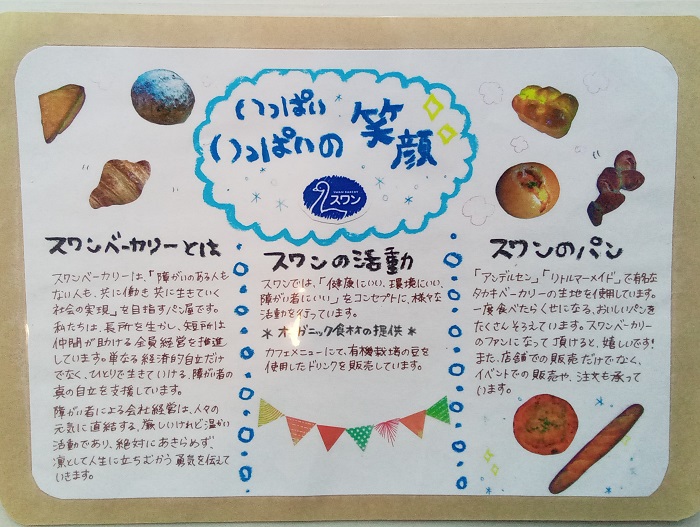 いっぱい
いっぱいの笑顔
スワン
スワンベーカリーとは
スワンベーカリーは、「障がいのある人も
ない人も、共に働き共に生きていく
社会の実現」を目指すパン屋です。
私たちは、長所を生かし、短所は
仲間が助ける全員経営を推進
しています。単なる経済的自立だけ
でなく、ひとりで生きていける、障がい者の
真の自立を支援しています。
障がい者による会社経営は、人々の
元気に直結する、厳しいけれど温かい
活動であり、絶対にあきらめず、
凛として人生に立ちむかう勇気を伝えて
いきます。
スワンの活動
スワンでは、「健康にいい、環境にいい、
障がい者にいい」をコンセプトに、様々な
活動を行っています。
＊オーガニック食材の提供＊
カフェメニューにて、有機栽培の豆を
使用したドリンクを販売しています。
スワンのパン
「アンデルセン」「リトルマーメイド」で有名な
タカキベーカリーの生地を使用しています。
一度食べたらくせになる、おいしいパンを
たくさんそろえています。スワンベーカリー
のファンになって頂けると、嬉しいです!
また、店舗での販売だけでなく、
イベントでの販売や、注文も承って
います。